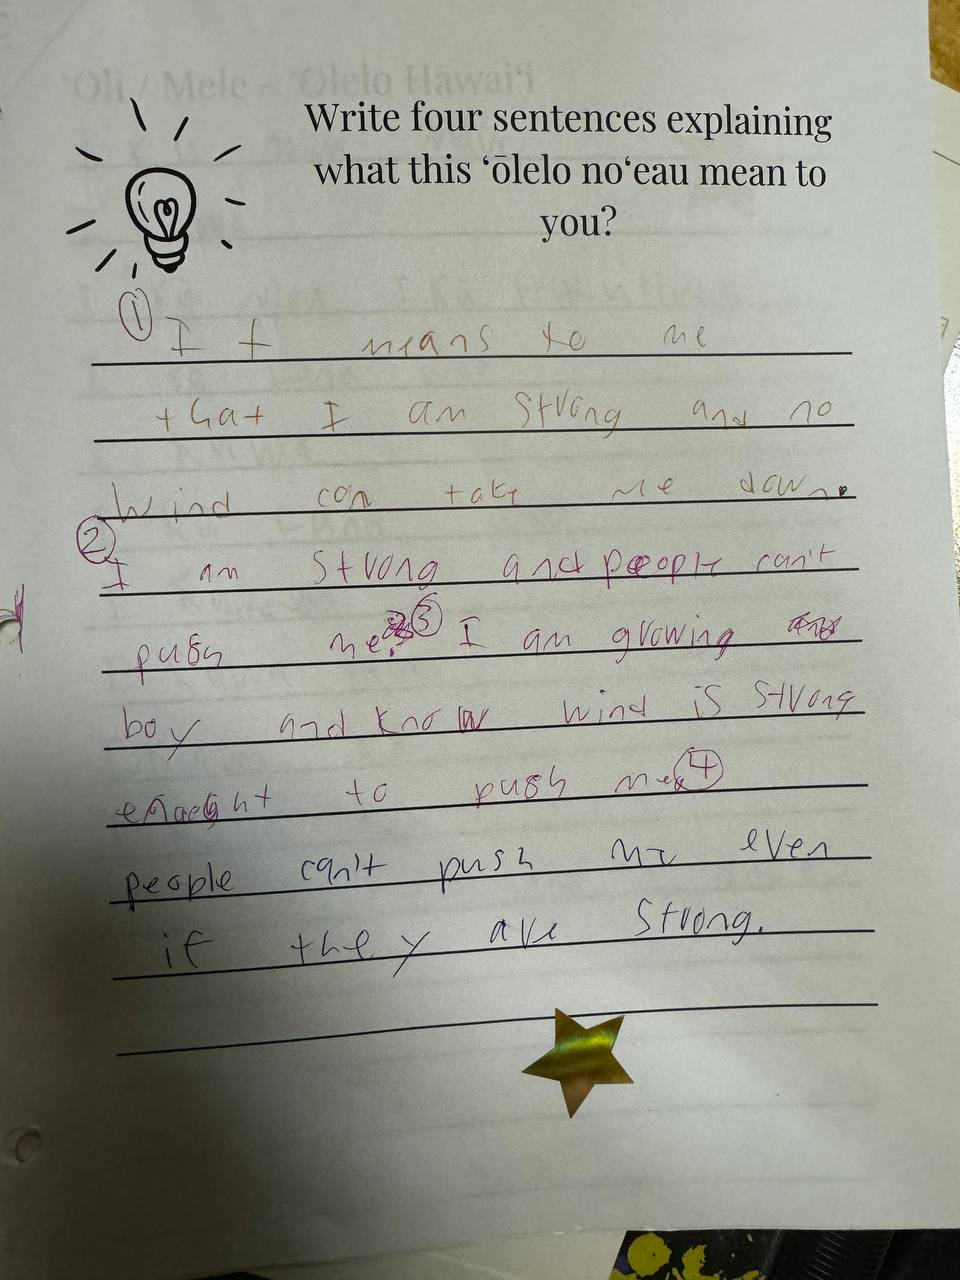 'Oli / Mele - 'Ōlelo Hāwai'i
Write four sentences explaining
what this ‘ōlelo no‘eau mean to
you?
① It means to me
that I am strong and no
wind can take me down.
② I am strong and people can't
push me. ③ I am growing
boy and know wind is strong
to push me ④
people can't push me even
if they are strong.